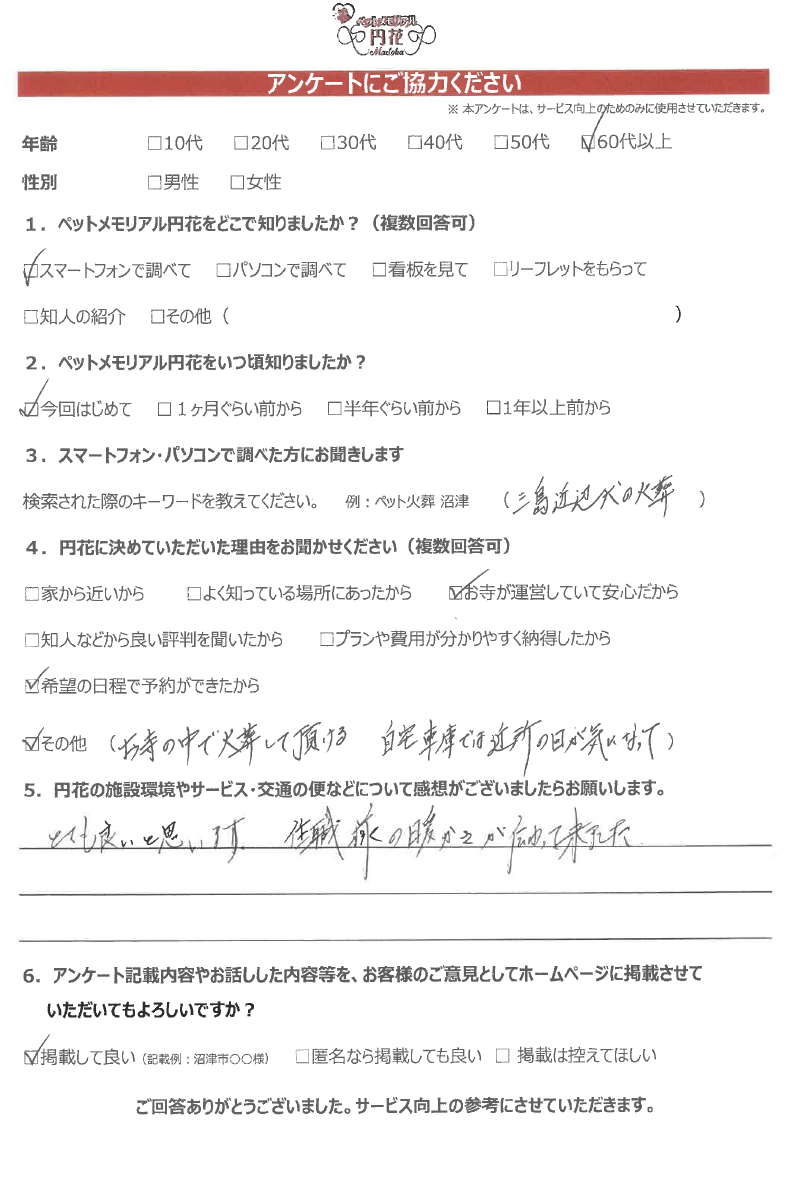 ペットメモリアル
円花
Madoka
アンケートにご協力ください
※ 本アンケートは、サービス向上のためのみに使用させていただきます。
年齢 □10代 □20代 □30代 □40代 □50代 ☑60代以上
性別 □男性 □女性
1．ペットメモリアル円花をどこで知りましたか？（複数回答可）
☑スマートフォンで調べて □パソコンで調べて □看板を見て □リーフレットをもらって
□知人の紹介 □その他（ ）
2．ペットメモリアル円花をいつ頃知りましたか？
☑今回はじめて □1ヶ月ぐらい前から □半年ぐらい前から □1年以上前から
3．スマートフォン・パソコンで調べた方にお聞きします
検索された際のキーワードを教えてください。 例：ペット火葬 沼津 （三島近辺犬の火葬）
4．円花に決めていただいた理由をお聞かせください（複数回答可）
□家から近いから □よく知っている場所にあったから ☑お寺が運営していて安心だから
□知人などから良い評判を聞いたから □プランや費用が分かりやすく納得したから
☑希望の日程で予約ができたから
☑その他（お寺の中で火葬して頂ける 自宅車庫では近所の目が気になって）
5．円花の施設環境やサービス・交通の便などについて感想がございましたらお願いします。
とても良いと思います。 住職 の暖かさが伝わって来ました
6．アンケート記載内容やお話しした内容等を、お客様のご意見としてホームページに掲載させて
いただいてもよろしいですか？
☑掲載して良い（記載例：沼津市〇〇様） □匿名なら掲載しても良い □ 掲載は控えてほしい
ご回答ありがとうございました。サービス向上の参考にさせていただきます。